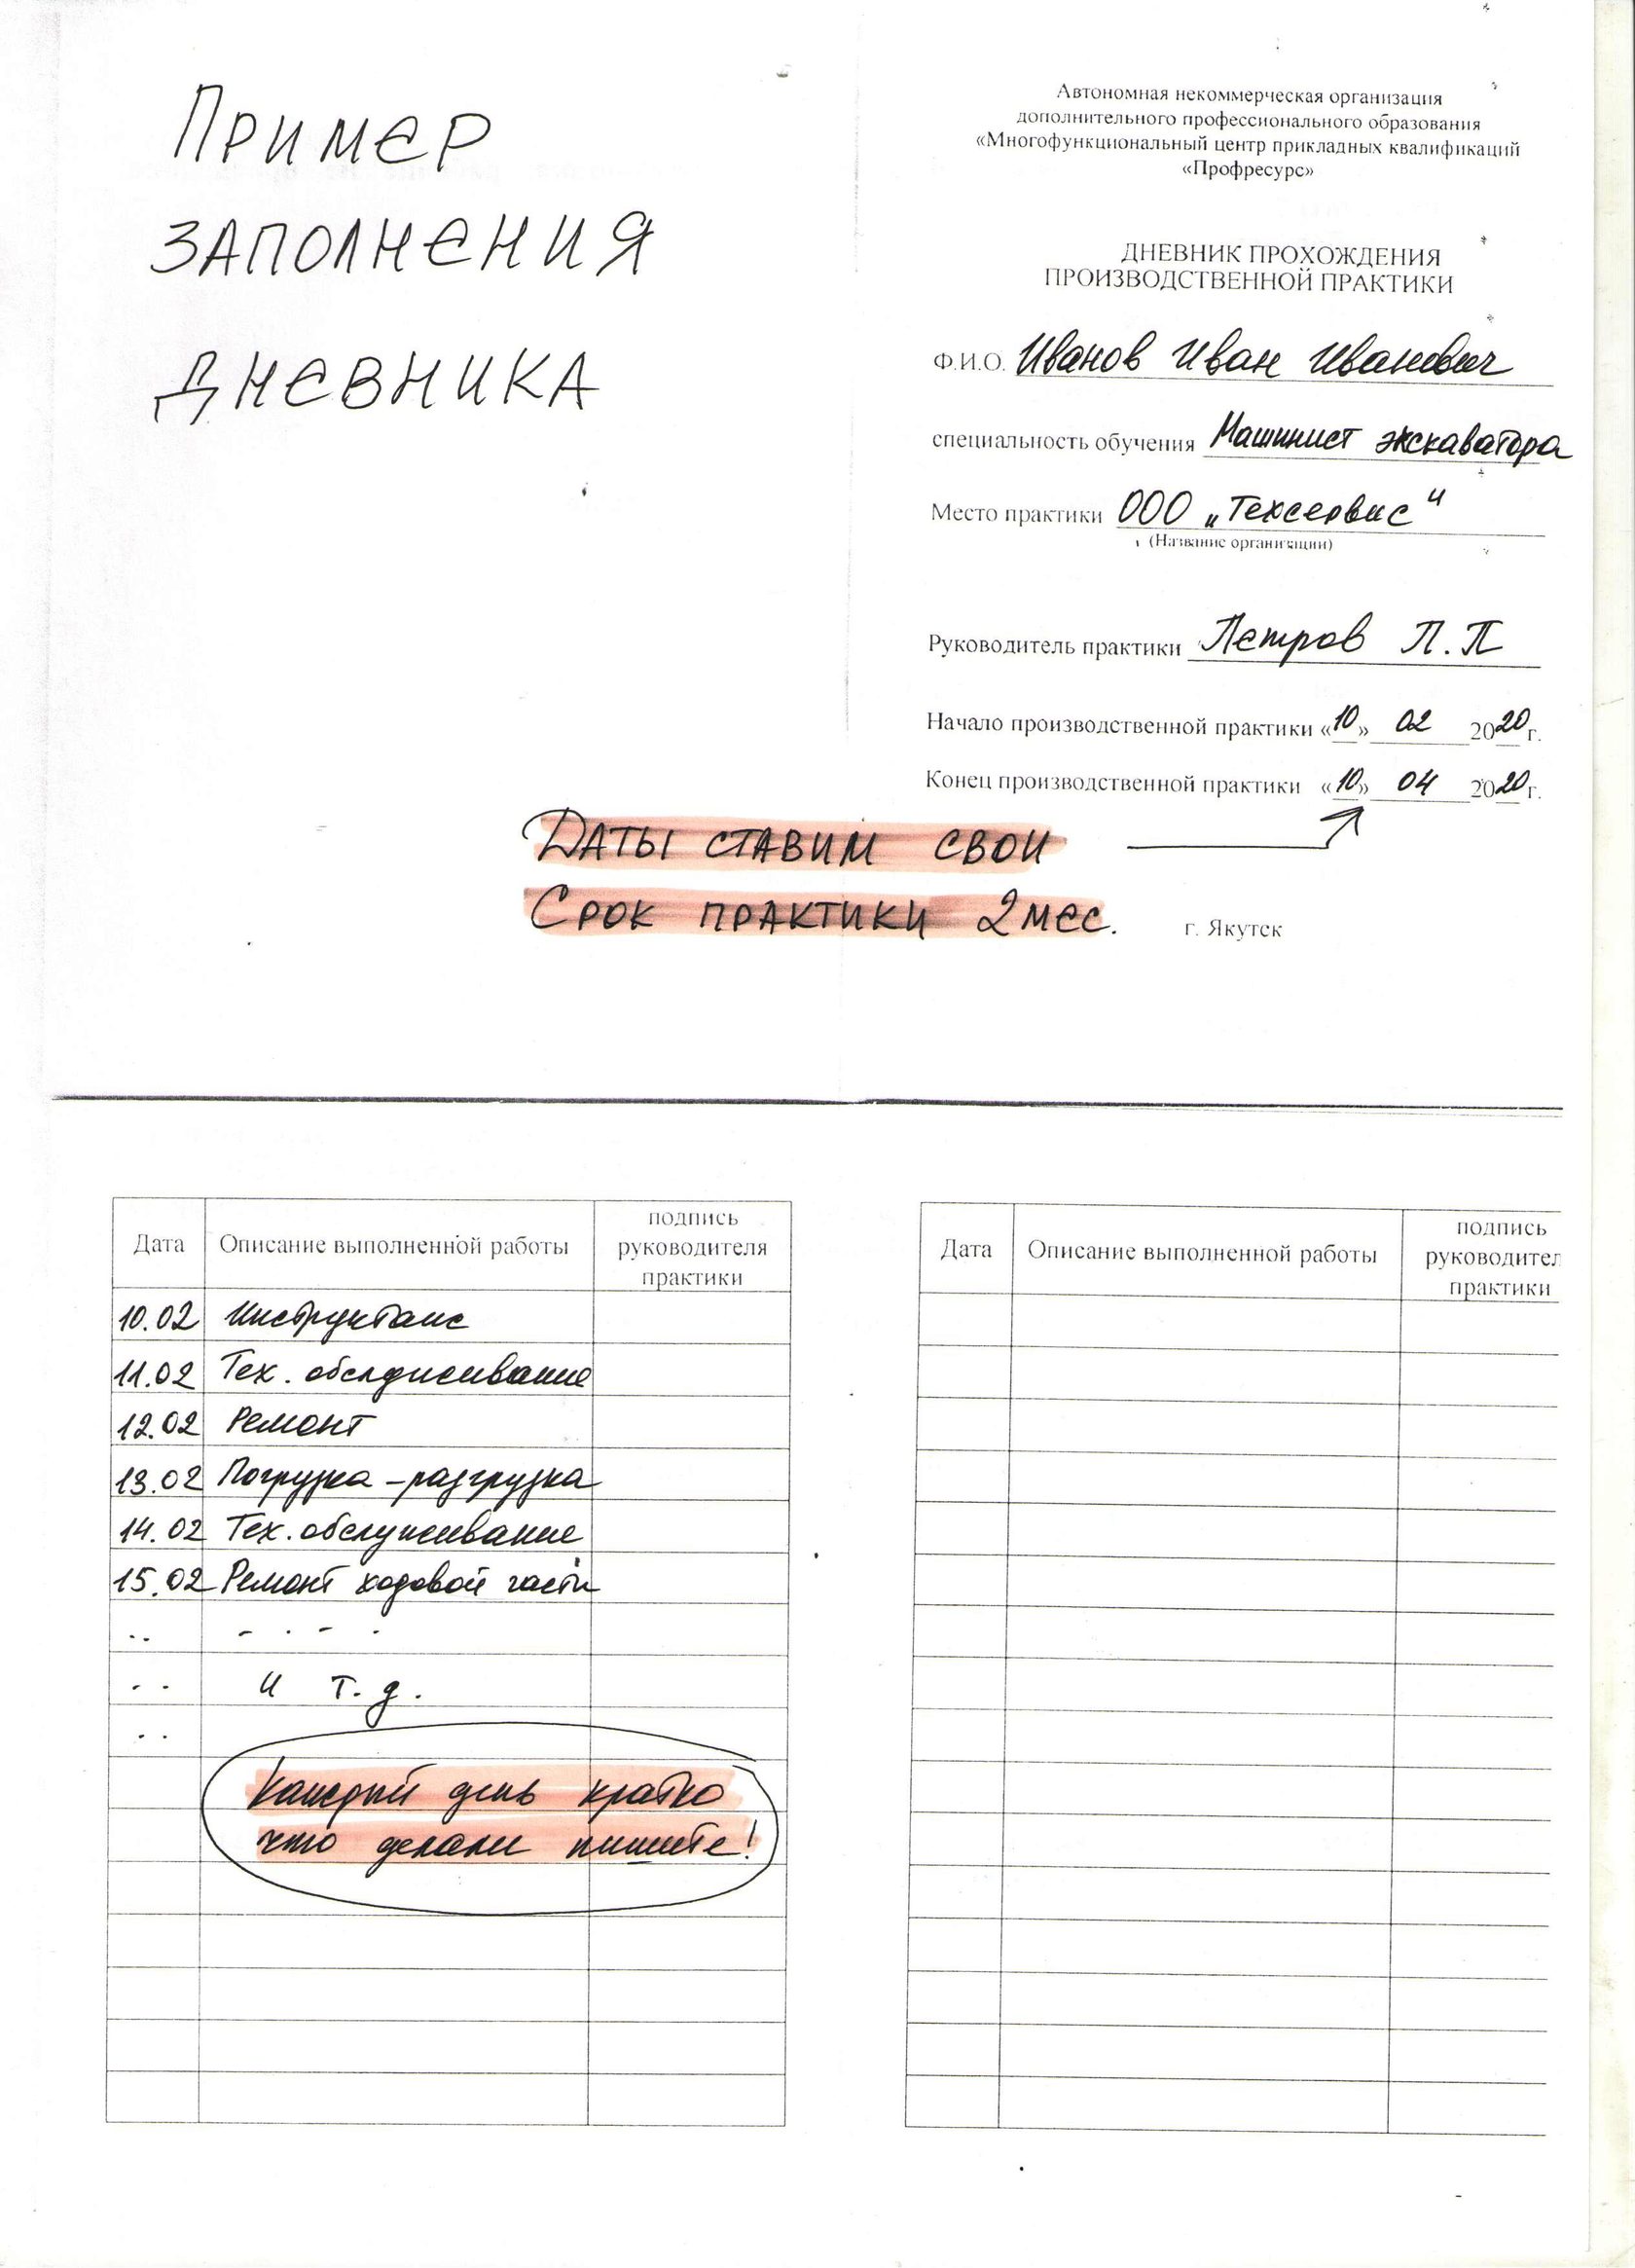 ПРИМЕР
ЗАПОЛНЕНИЯ
ДНЕВНИКА
Автономная некоммерческая организация
дополнительного профессионального образования
«Многофункциональный центр прикладных квалификаций
«Профресурс»
ДНЕВНИК ПРОХОЖДЕНИЯ
ПРОИЗВОДСТВЕННОЙ ПРАКТИКИ
Ф.И.О. Иванов Иван Иванович
специальность обучения Машинист экскаватора
Место практики ООО „Техсервис“
(Название организации)
Руководитель практики Петров П.П
Начало производственной практики «10» 02 2020г.
Конец производственной практики «10» 04 2020г.
ДАТЫ СТАВИМ СВОИ
СРОК ПРАКТИКИ 2 МЕС.
г. Якутск
Дата Описание выполненной работы подпись руководителя практики
10.02 Инструктаж
11.02 Тех. обслуживание
12.02 Ремонт
13.02 Погрузка-разгрузка
14.02 Тех. обслуживание
15.02 Ремонт ходовой части
.. - . - .
.. и т.д.
..
Каждый день кратко
что делали пишите!
Дата Описание выполненной работы подпись руководител практики